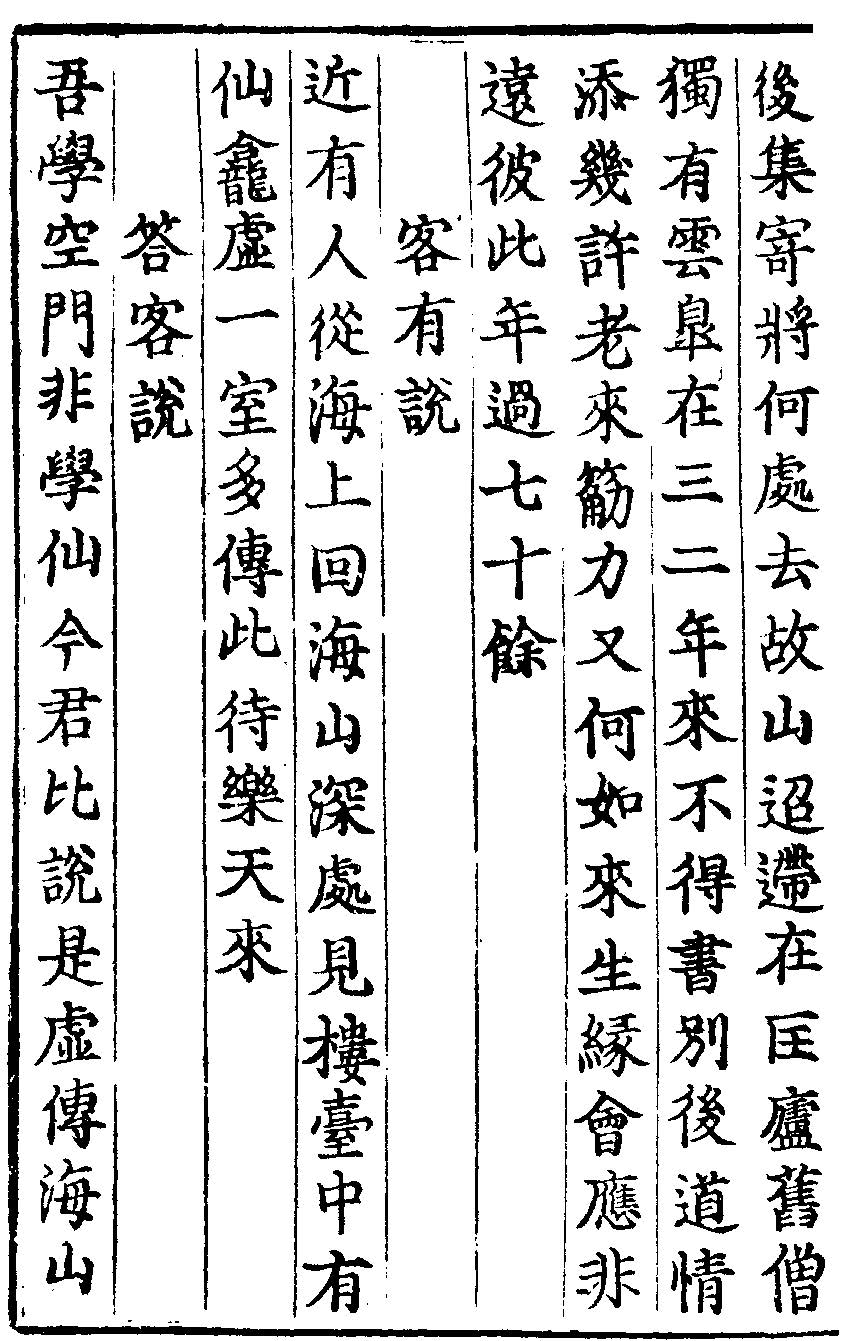 後集寄將何處去故山迢遰在匡廬舊僧
獨有雲臯在三二年來不得書別後道情
添幾許老來筋力又何如來生緣會應非
遠彼此年過七十餘
客有說
近有人從海上回海山深處見樓臺中有
仙龕虛一室多傳此待樂天來
答客說
吾學空門非學仙今君比說是虛傳海山